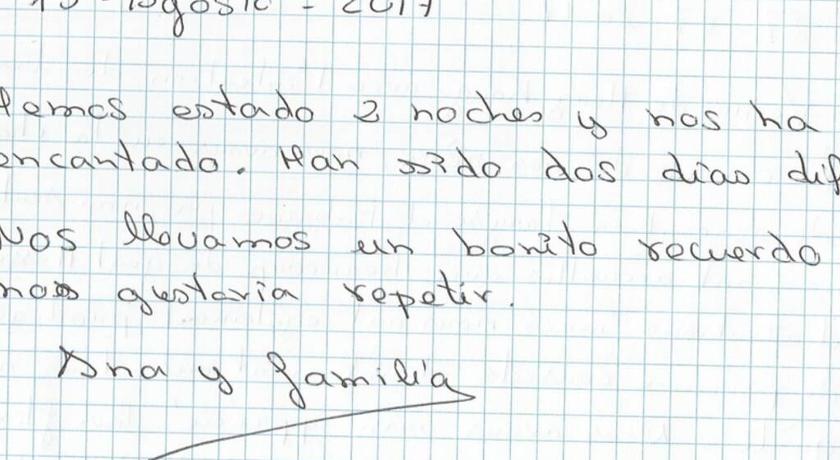 Agosto - 2017
Hemos estado 2 noches y nos ha
encantado. Han sido dos dias dif
Nos llevamos un bonito recuerdo
nos gustaria repetir.
Ana y familia